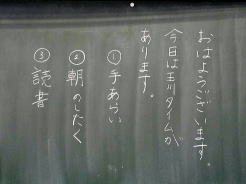 おはようございます。
今日は玉川タイムが
あります。
①手あらい
②朝のしたく
③読書